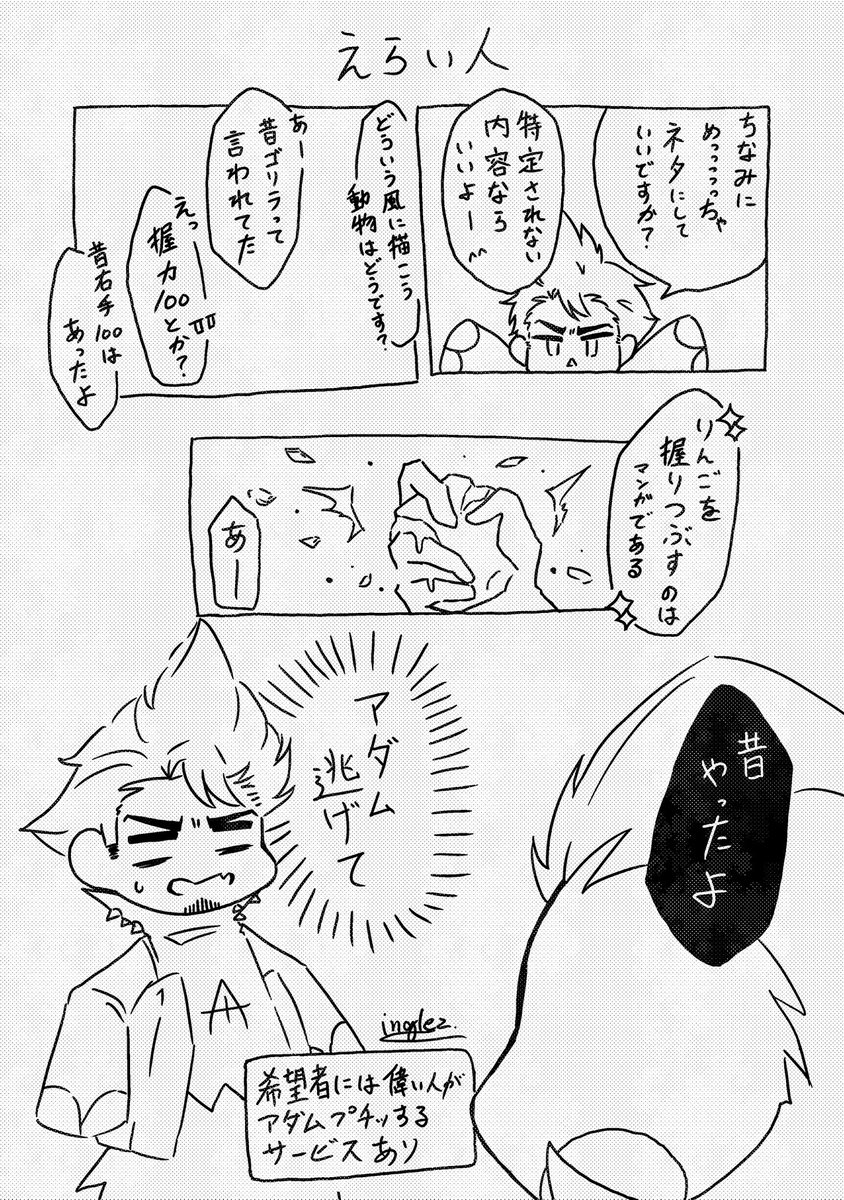 えらい人
ちなみに
めっっっっちゃ
ネタにして
いいですか?
特定されない
内容なら
いいよー^^
どういう風に描こう
動物はどうです?
あー
昔ゴリラって
言われてた
えっ
握力100とか?
昔右手100は
あったよ
りんごを
握りつぶすのは
マンガである
あー
アダム
逃げて
昔
やったよ
inglez.
希望者には偉い人が
アダムプチッする
サービスあり